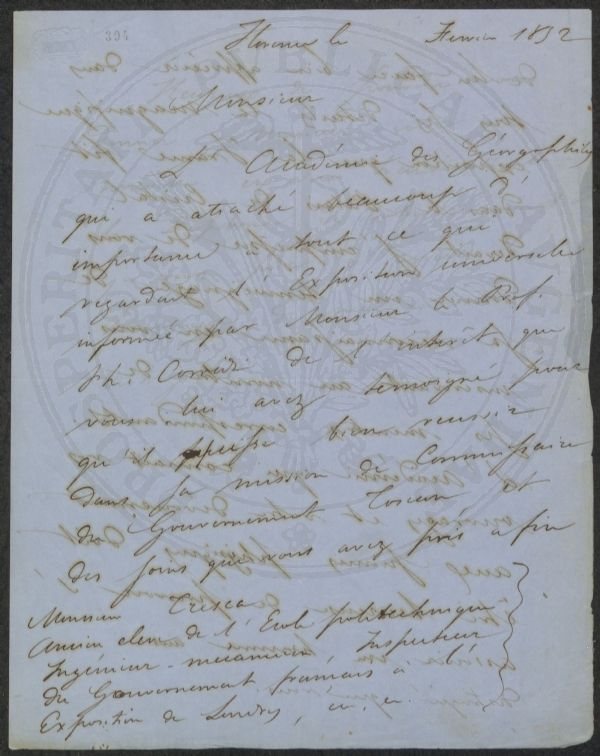 394
Florence le Fevrier 1852
Monsieur
L'Académie des Géorgophiles
qui a attaché beaucoup d'
importance à tout ce que
regardait l'Exposition universelle
informée par Monsieur le Prof.
Ph: Corridi de l'interêt que
vous lui avez temoigné pour
qu'il puisse bien reussir
dans sa mission de Commissaire
du Gouvernement Toscan et
des soins que vous avez pris a fin
Monsieur Tresca
Ancien eleve de l'Ecole politechnique
Ingénieur-mecanicien Inspecteur
du Gouvernement français a l'
Exposition de Londres,